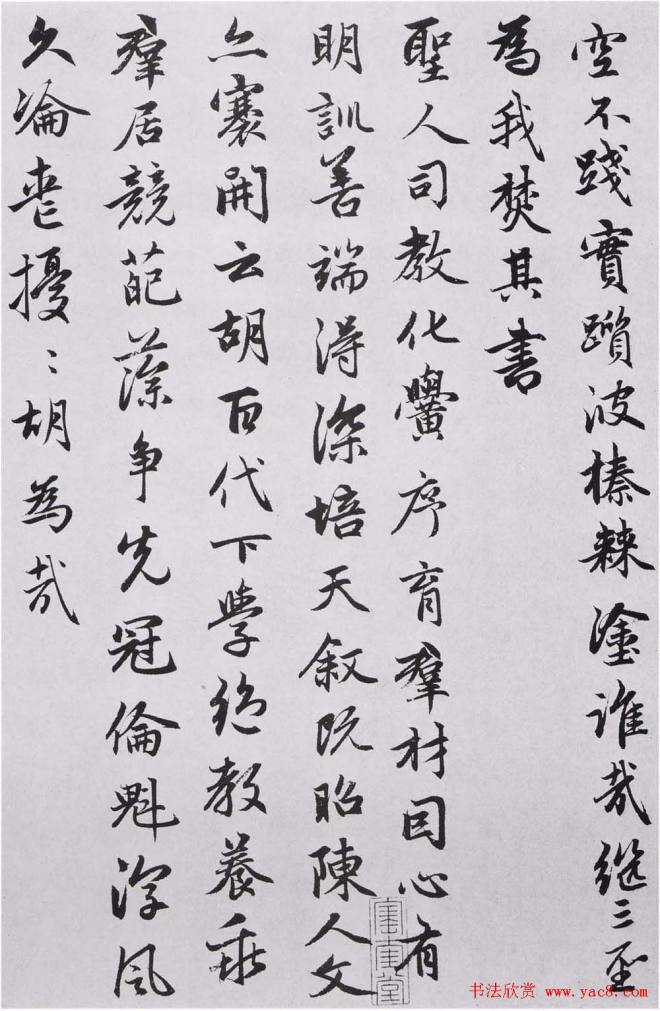 空不踐實躓彼榛棘塗誰哉繼三聖
為我焚其書
聖人司教化黌序育羣材因心有
明訓善端得深培天敘既昭陳人文
亦褰開云胡百代下學絕教養乖
羣居競葩藻爭先冠倫魁淳風
久淪喪擾〻胡為哉
書法欣赏 www.yac8.com